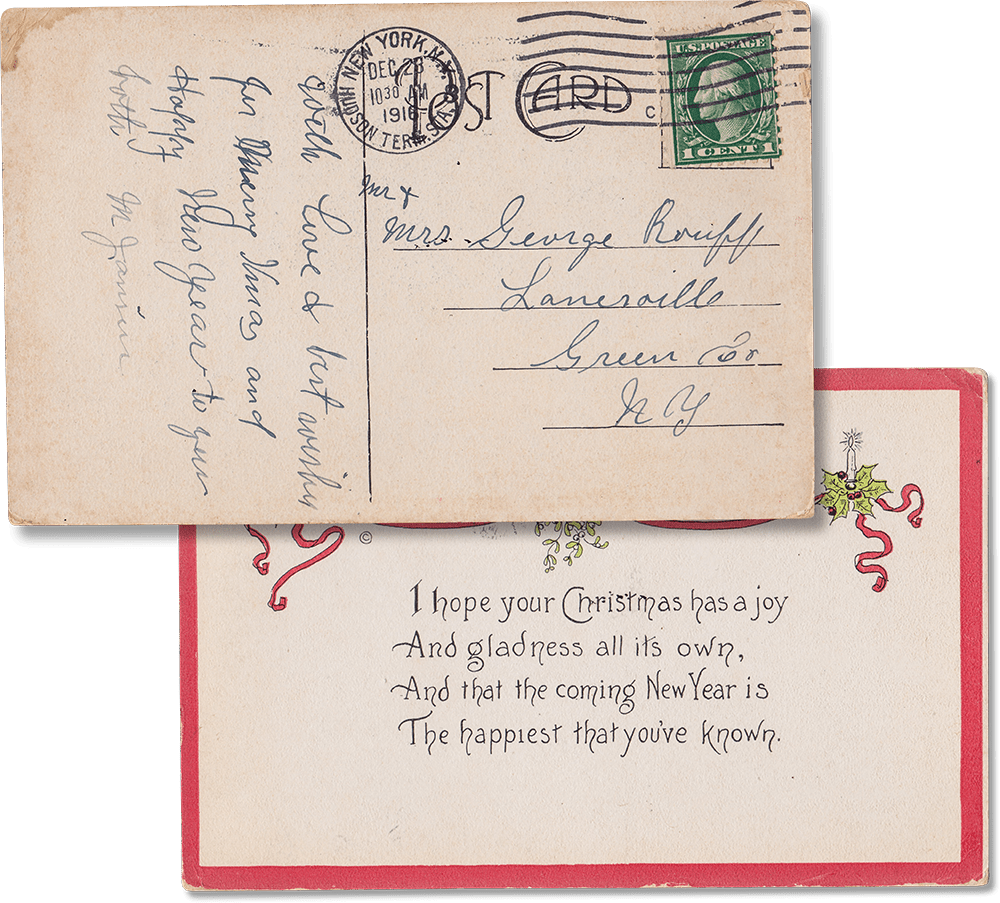 NEW YORK, N.Y.
HUDSON TERM. STA.
DEC 23
10 30 AM
1916
POST CARD
C
U.S. POSTAGE
1 CENT 1
With Love & best wishes
for Merry Xmas and
Happy New Year to you
both M
Mr &
Mrs. George Rouff
Lanesville
Green Co
N Y
©
I hope your Christmas has a joy
And gladness all its own,
And that the coming New Year is
The happiest that you've known.